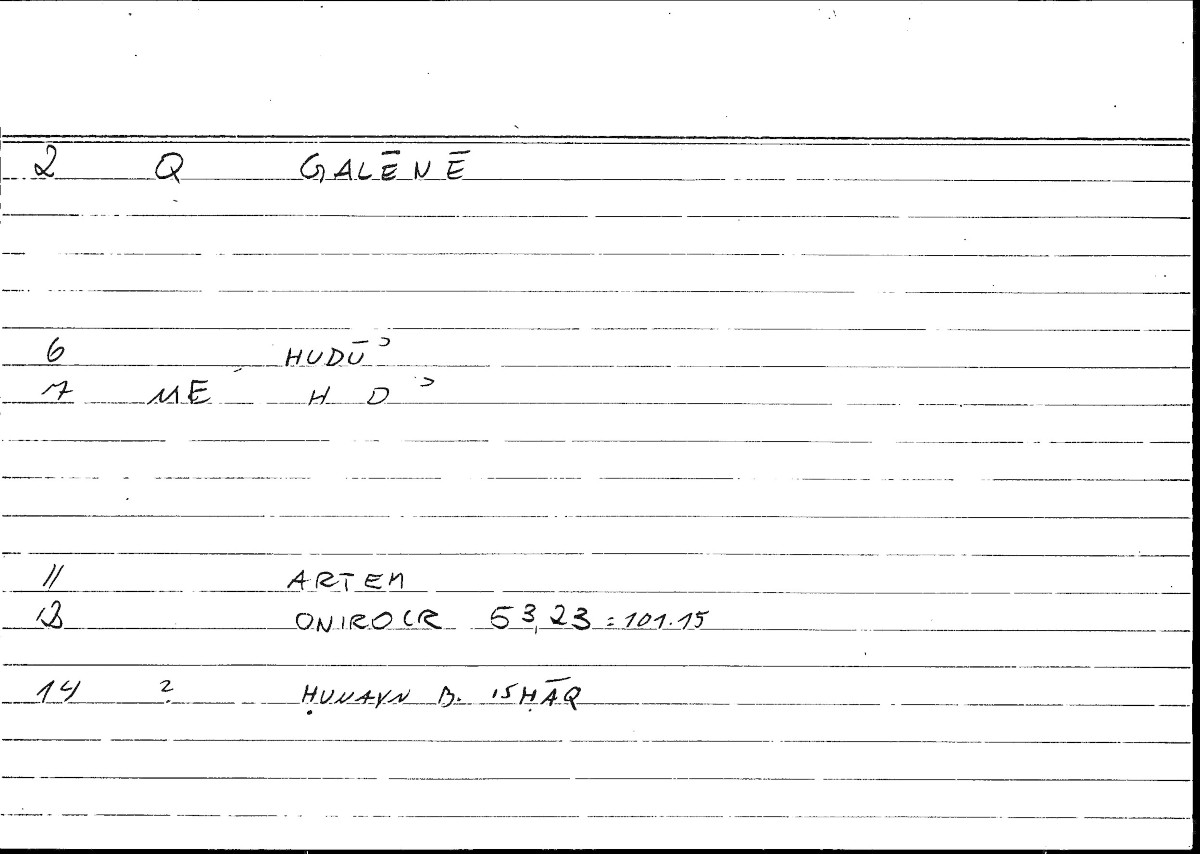 2 Q GALĒNĒ
6 HUDŪʾ
7 ME H D ʾ
11 ARTEM
12 ONIROCR 53,23 = 101.15
14 ? ḤUNAYN B. ISḤĀQ